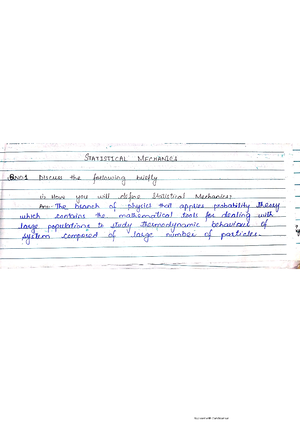 STATISTICAL MECHANICS
QNO1 Discuss the following briefly
i) How you will define Statistical Mechanics?
Ans: The branch of physics that applies probability theory
which contains the mathematical tools for dealing with
large populations to study thermodynamic behaviour of
system composed of large number of particles.